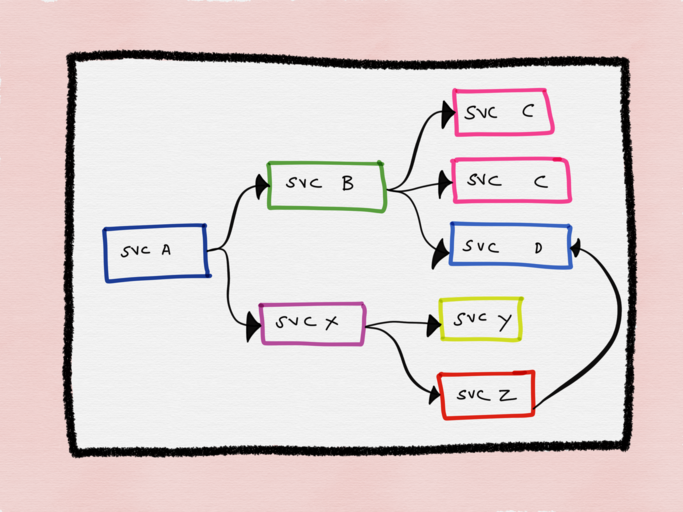 SVC C
SVC B
SVC C
SVC A
SVC D
SVC X
SVC Y
SVC Z